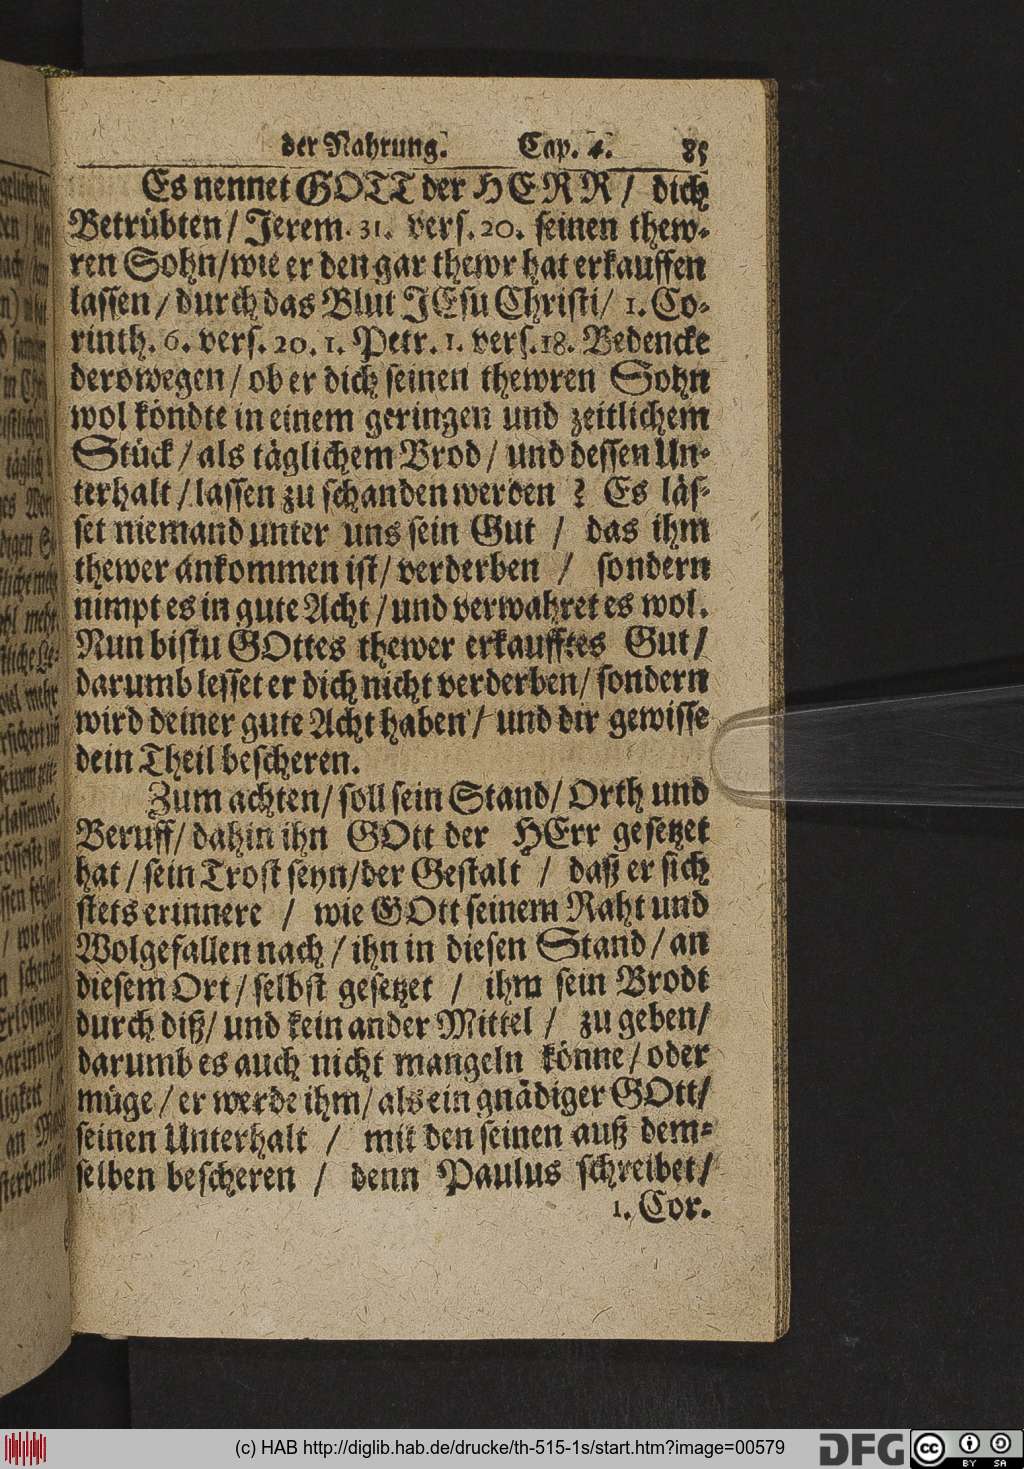 der Nahrung. Cap. 4. 85
Es nennet GOTT der HERR / dich
Betrübten / Jerem. 31. vers. 20. seinen thew-
ren Sohn / wie er den gar thewr hat erkauffen
lassen / durch das Blut JEsu Christi / 1. Co-
rinth. 6. vers. 20. 1. Petr. 1. vers. 18. Bedencke
derowegen / ob er dich seinen thewren Sohn
wol köndte in einem geringen und zeitlichem
Stück / als täglichem Brod / und dessen Un-
terhalt / lassen zu schanden werden ? Es läs-
set niemand unter uns sein Gut / das ihm
thewer ankommen ist / verderben / sondern
nimpt es in gute Acht / und verwahret es wol.
Nun bistu GOttes thewer erkaufftes Gut /
darumb lesset er dich nicht verderben / sondern
wird deiner gute Acht haben / und dir gewisse
dein Theil bescheren.
Zum achten / soll sein Stand / Orth und
Beruff / dahin ihn GOtt der HErr gesetzet
hat / sein Trost seyn / der Gestalt / daß er sich
stets erinnere / wie GOtt seinem Raht und
Wolgefallen nach / ihn in diesen Stand / an
diesem Ort / selbst gesetzet / ihm sein Brodt
durch diß / und kein ander Mittel / zu geben /
darumb es auch nicht mangeln könne / oder
müge / er werde ihm / als ein gnädiger GOtt /
seinen Unterhalt / mit den seinen auß dem-
selben bescheren / denn Paulus schreibet /
1. Cor.
(c) HAB http://diglib.hab.de/drucke/th-515-1s/start.htm?image=00579
DFG
cc BY SA